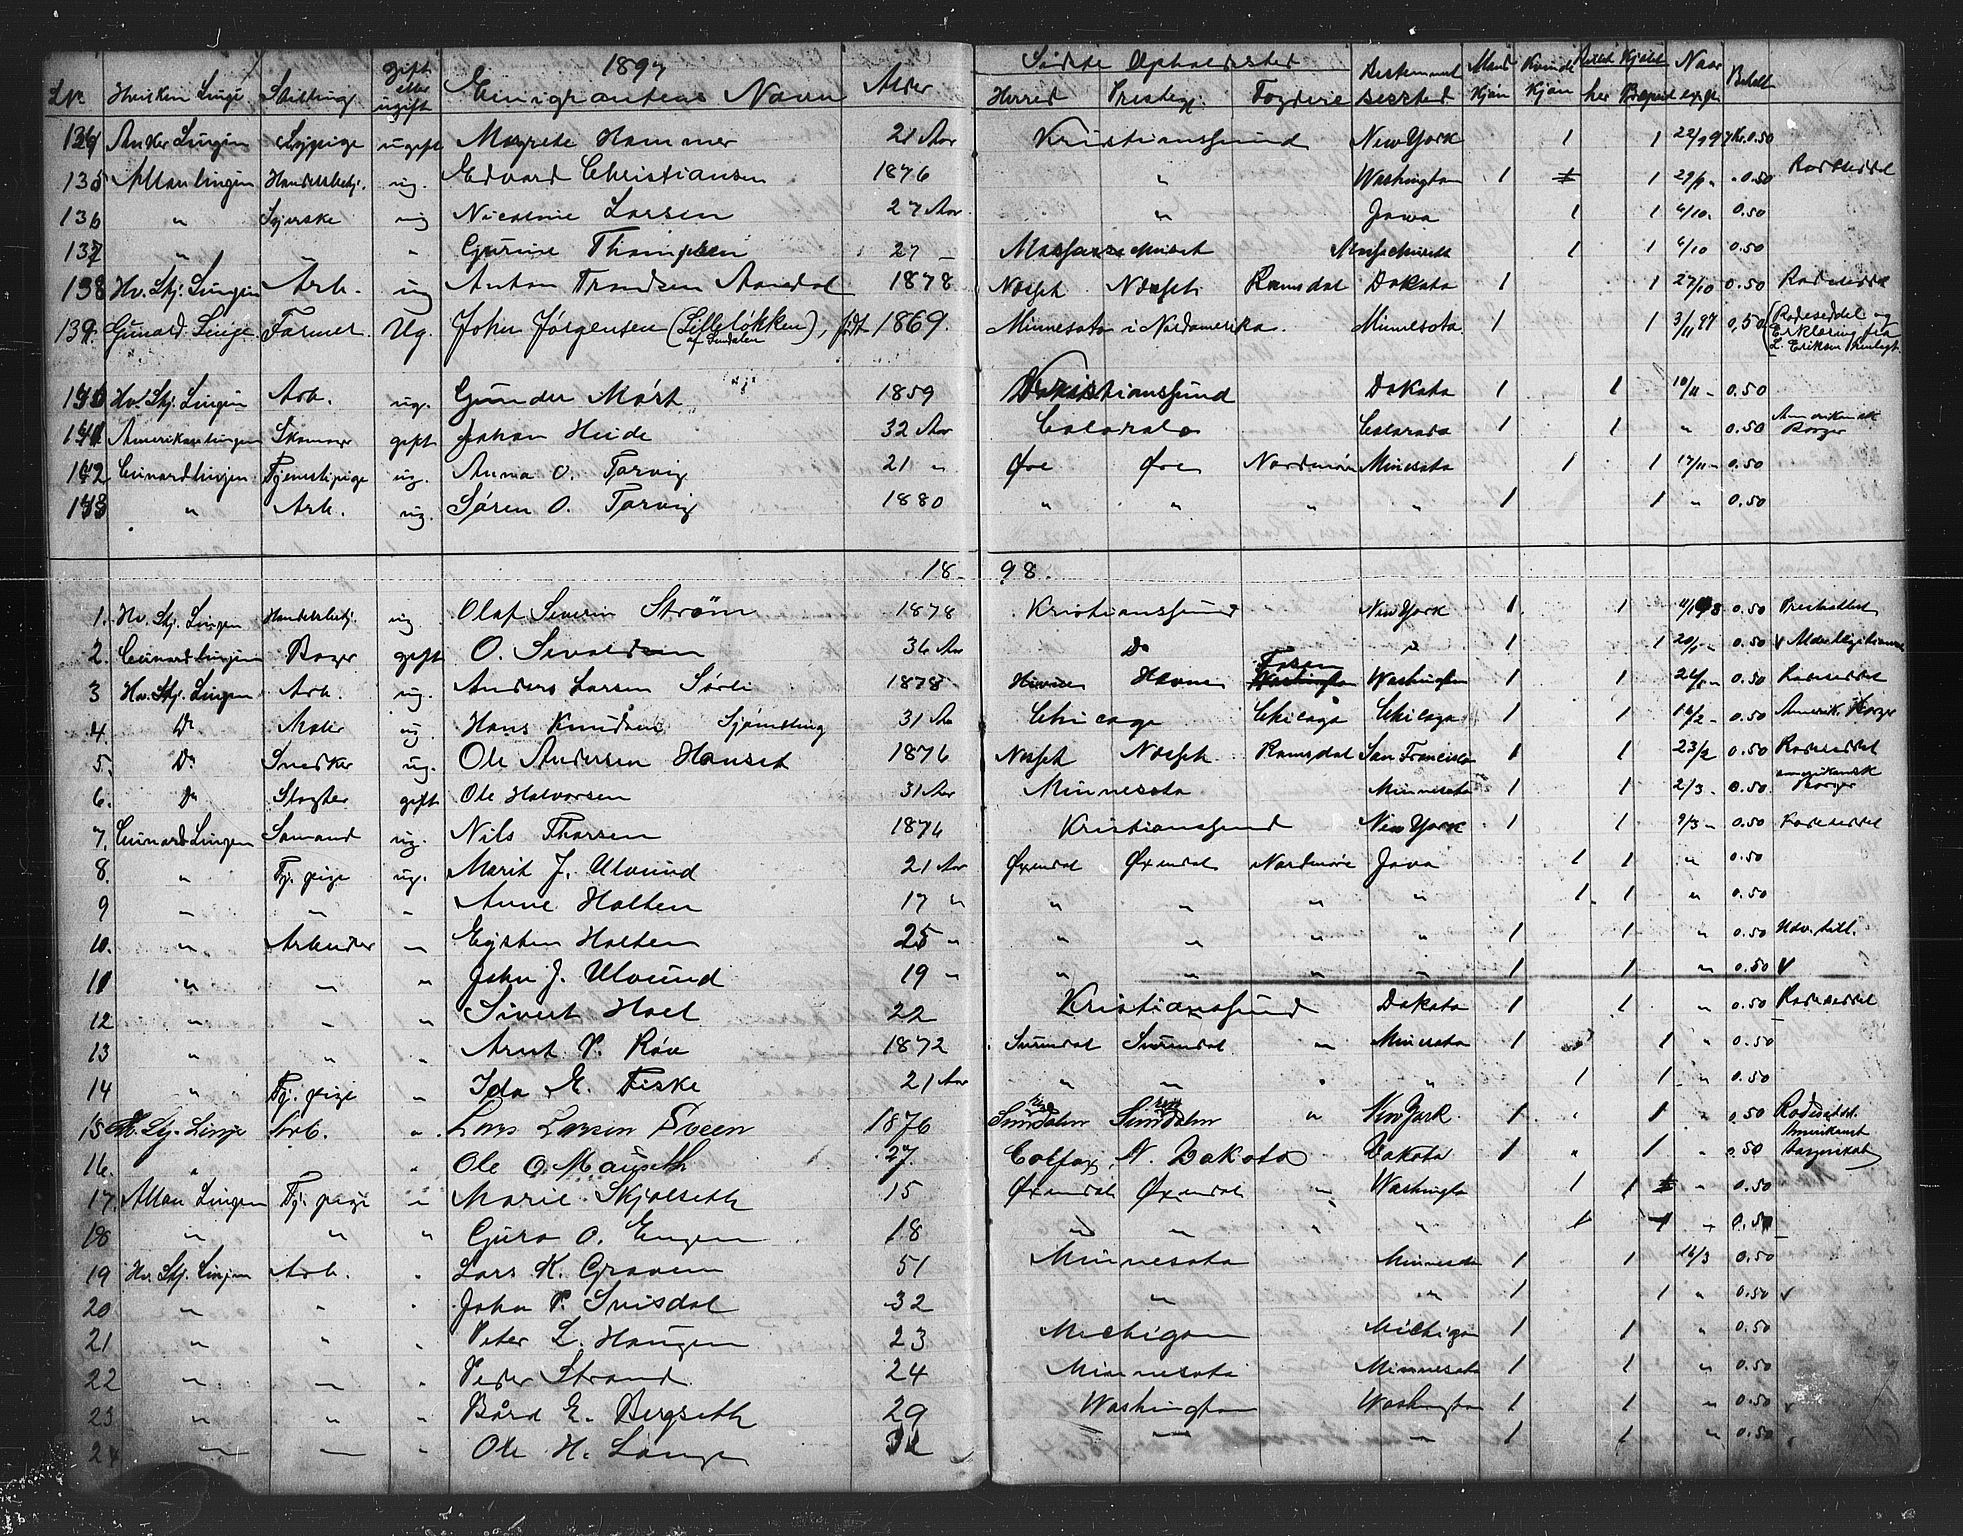 1897
LNo Hvilken Linje Stilling gift eller ugift Emigrantens Navn Alder Sidste Opholdssted Herred Prestegj. Fogderie Bestemmelsessted Mand Kjøn Kvinde Kjøn her Naar Betalt
134 Anker Linjen Sypige ugift Magrete Hammer 21 Aar Kristianssund New York 1 1 22/9 97 Kr. 0.50
135 Allanlinjen Handelsbetj. ug. Edvard Christiansen 1876 " Washington 1 1 29/9 " " 0.50 Rodeseddel
136 " Syerske ug Nicoline Larsen 27 Aar " Jowa 1 1 6/10 0.50
137 " " " Gurine Thompsen 27 — Massachuset Massachusets 1 1 6/10 0.50
138 Hv. Stj. Linjen Arb. ug Anton Trondsen Aandal 1878 Nesset Nesset Romsdal Dakota 1 1 27/10 0.50 Rodeseddel
139. Cunard. Linje Farmer. Ug. John Jørgensen (Lilleløkken), født 1869. Minnesota i Nordamerika. Minnesota 1 1 3/11 97 0,50 (Rodeseddel og
af Sundalen Erklæring fra
L. Eriksen henlagt.
140 Hv. Stj. Linjen Arb. ug. Gunder Mørk 1859 Kristianssund Dakota 1 1 10/11 - 0.50
141 Amerikalinjen gift Johan Heide 32 Aar Colorado Colorado 1 1 " 0.50 Amerikansk Borger
142 Cunardlinjen Tjenestepige ug. Anna O. Torvig 21 " Øre Øre Nordmøre Minesota 1 1 17/11 - 0.50
143 " Arb. ug. Søren O. Torvig 1880 " " " " 1 1 " 0.50
18 - 98.
1. Hv. Stj. Linjen Handelsbetj. ug Olaf Severin Strøm 1878 Kristianssund New York 1 1 0.50 Prestattest
2. Cunardlinjen gift O. Sivaldsen 36 Aar Do " 1 1 20/1 - 0.50
3 Hv. Stj. Linjen Arb. ug. Anders Larsen Sørli 1878 Hevne Hevne Fosen Washington 1 1 0.50 Rodeseddel
4. Do Maler ug. Hans Knudsen 31 Aar Chicago Chicago Chicago 1 1 16/2 - 0.50 Amerik. Borger
5. Do Snedker ug. Ole Andersen Hanset 1876 Nesset Nesset Romsdal San Francisco 1 1 23/2 0.50 Rodeseddel
6. Do Slagter gift Ole Halvorsen 31 Aar Minnesota Minnesota 1 1 2/3 - 0.50 amerikansk Borger
7. Cunard Linjen Sømand ug. Nils Thorsen 1876 Kristianssund New York 1 1 9/3 " 0.50 Rodeseddel
8. " Tj. pige ug. Marit J. Ulvund 21 Aar Øxendal Øxendal Nordmøre Jova 1 1 " 0.50
9 " " " Anne Holten 17 " " " " " 1 1 " 0.50
10. " Arbeider " Eysten Holten 25 " " " " " 1 1 " 0.50 Udv. till.
11 " " " John J. Ulvund 19 " " " " " 1 1 " 0.50 V
12 " " " Sivert Hoel 22 Kristianssund Dakota 1 1 " 0.50 Rodeseddel
13 " " " Arnt P. Røv 1872 Surendal Surendal " Minesota 1 1 " 0.50
14 " Tj. pige " Ida E. Fiske 21 Aar " " " " 1 1 " 0.50
15 Hv. Stj. Linje Arb. " Lars Larsen Sveen 1876 Sundalen Sundalen " New York 1 1 " 0,50 Rodeseddel.
16. " " Ole O. Mauseth 27. Colfax, N. Dakota Dakota 1 1 " 0.50 Amerikansk Borgerskab
17. Allan Linjen Tj. pige " Marie Skjølseth 15 Øxendal Øxendal " Washington 1 1 " 0.50
18 " " " Guro O. Engen 18 " " " " 1 1 " 0.50
19 Hv. Stj. Linjen Arb. " Lars K. Graven 51 Minnesota Minnesota 1 1 16/3 0.50
20 " " " John P. Svisdal 32 " " 1 1 " 0.50 v
21 " " " Peter L. Haugen 23 Michigan Michigan 1 1 " 0.50
22 " " " Peder Strand 24 Minnesota Minnesota 1 1 " 0.50
23 " " " Bård E. Bergseth 29 Washington Washington 1 1 " 0.50
24 " " " Ole H. " " 1 1 " 0.50